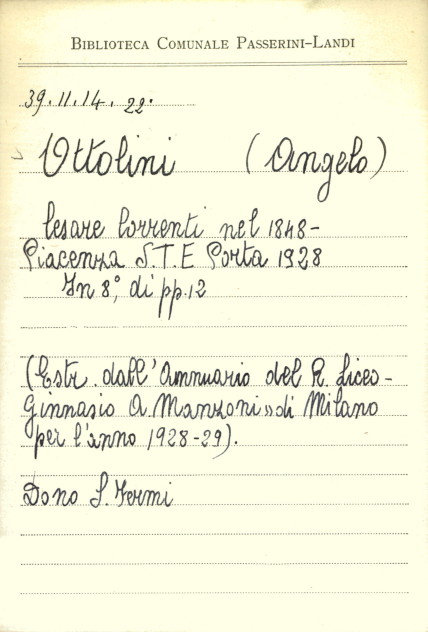 BIBLIOTECA COMUNALE PASSERINI-LANDI
39.11.14.22.
Ottolini (Angelo)
Cesare Correnti nel 1848-
Piacenza S.T.E Porta 1928
In 8°, di pp.12
(Estr. dall'Annuario del R. Liceo-
Ginnasio A. Manzoni» di Milano
per l'anno 1928-29).
Dono S. Fermi